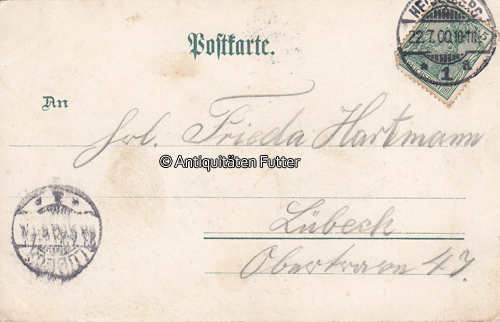 Postkarte.
HEIDELBERG
22.7.00.10-11V.
* 1 a
An
Frl. Frieda Hartmann
© Antiquitäten Futter
Lübeck
Obertrave 47.
LÜBECK